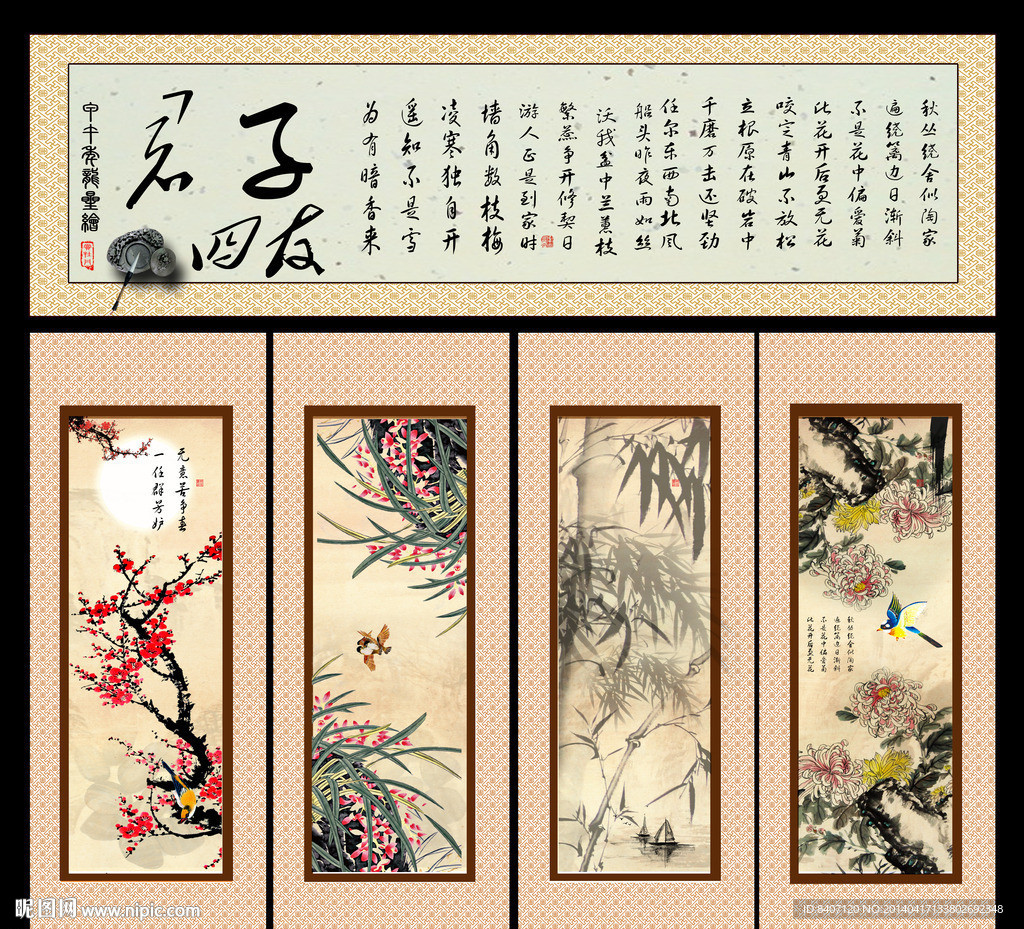 秋丛绕舍似陶家
遍绕篱边日渐斜
不是花中偏爱菊
此花开后更无花
咬定青山不放松
立根原在破岩中
千磨万击还坚劲
任尔东西南北风
船头昨夜雨如丝
沃我盆中兰蕙枝
繁蕊争开修契日
游人正是到家时
墙角数枝梅
凌寒独自开
遥知不是雪
为有暗香来
君子
四友
甲午年龍墨繪
无意苦争春
一任群芳妒
秋丛绕舍似陶家
遍绕篱边日渐斜
不是花中偏爱菊
此花开后更无花
昵图网 www.nipic.com
ID:8407120 NO:20140417133802692348